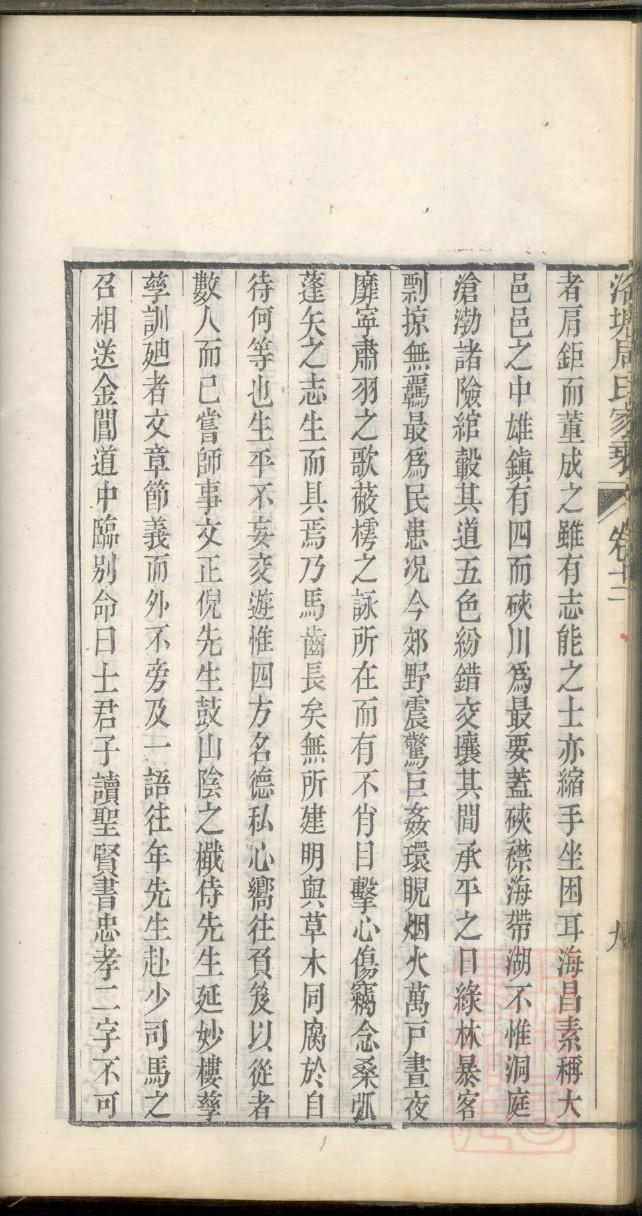 周氏家
卷十二
九
者肩鉅而董成之雖有志能之士亦縮手坐困耳海昌素稱大
邑邑之中雄鎮有四而硤川爲最要蓋硤襟海帶湖不惟洞庭
滄渤諸險綰轂其道五色紛錯交壤其間承平之日綠林暴客
剽掠無羈最爲民患况今郊野震驚巨姦環睨烟火萬戸晝夜
靡寧肅羽之歌菝樗之詠所在而有不肖目擊心傷竊念桑弧
蓬矢之志生而具焉乃馬齒長矣無所建明與草木同腐於自
待何等也生平不妄交遊惟四方名德私心嚮往負笈以從者
數人而已嘗師事文正倪先生鼓山陰之檝侍先生延妙樓孳
孳訓廸者文章節義而外不旁及一語往年先生赴少司馬之
召相送金閶道中臨别命曰士君子讀聖賢書忠孝二字不可